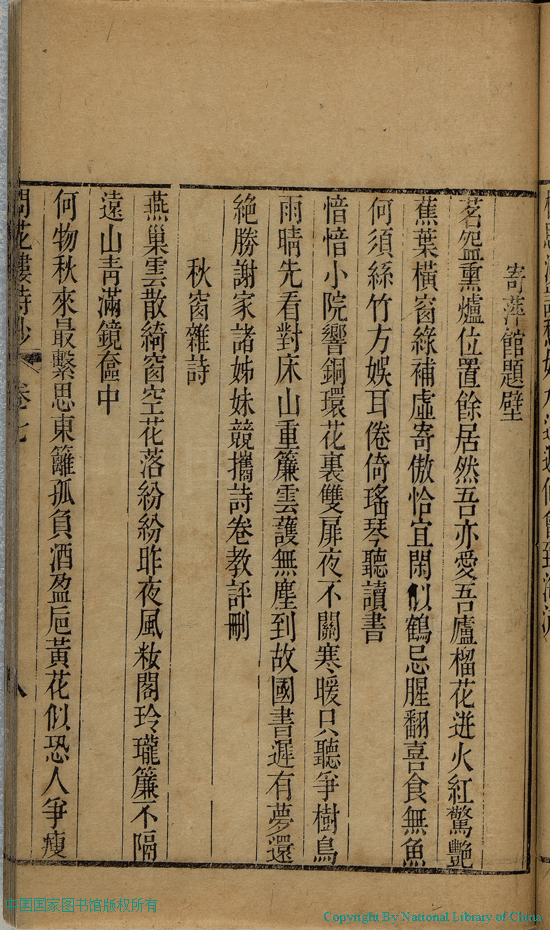 寄萍館題壁
茗盌熏爐位置餘居然吾亦愛吾廬榴花迸火紅驚艷
蕉葉橫窗綠補虛寄傲恰宜閑似鶴忌腥翻喜食無魚
何須絲竹方娛耳倦倚瑤琴聽讀書
愔愔小院響銅環花裏雙扉夜不關寒暖只聽爭樹鳥
雨晴先看對床山重簾雲護無塵到故國書遲有夢還
絕勝謝家諸姊妹競攜詩卷教評刪
秋窗雜詩
燕巢雲散綺窗空花落紛紛昨夜風妝閣玲瓏簾不隔
遠山靑滿鏡奩中
何物秋來最繫思東籬孤負酒盈巵黃花似恐人爭瘦
問花樓詩鈔 卷七 八
中国国家图书馆版权所有
Copyright By National Library of China